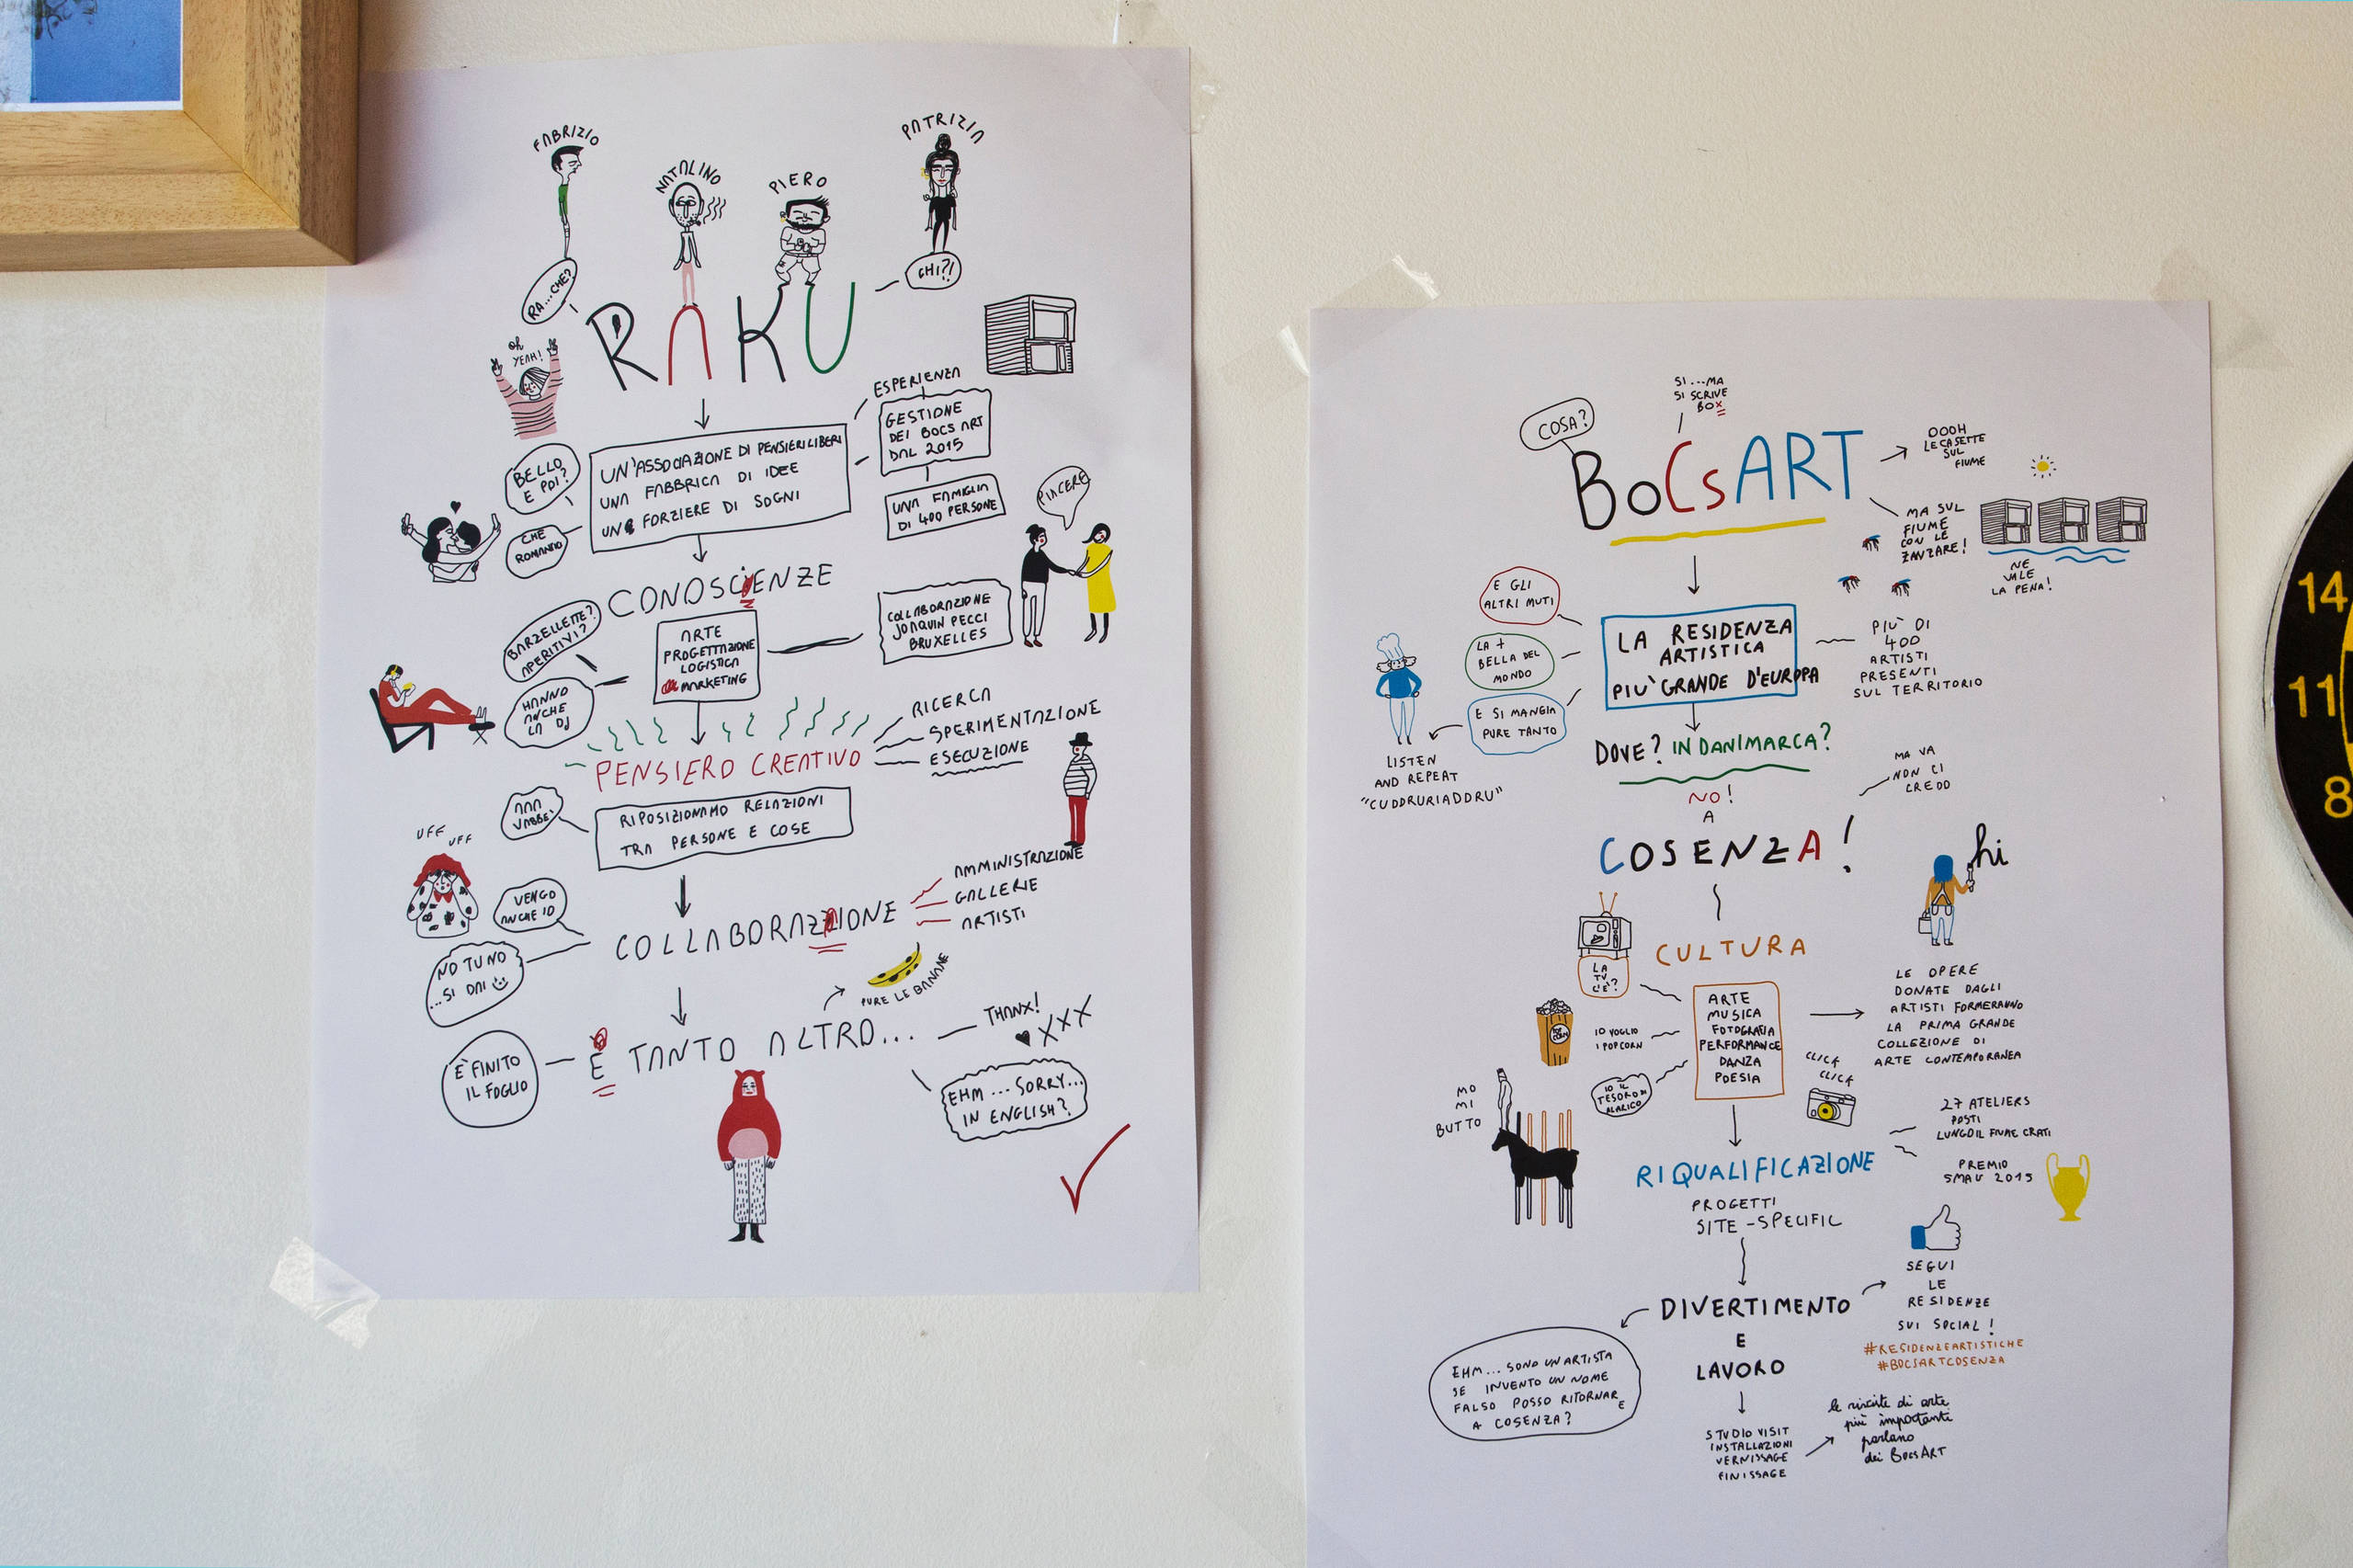 FABRIZIO
NATALINO
PIERO
PATRIZIA
RA...CHE?
CHI?!
RAKU
oh
YEAH!
ESPERIENZA
GESTIONE
DEI BOCS ART
DAL 2015
UN'ASSOCIAZIONE DI PENSIERI LIBERI
UNA FABBRICA DI IDEE
UN FORZIERE DI SOGNI
BELLO
E POI?
CHE
UNA FAMIGLIA
DI 400 PERSONE
PIACERE
CONOSCIENZE
BARZELLETTE?
APERITIVI?
ARTE
PROGETTAZIONE
LOGISTICA
MARKETING
COLLABORAZIONE
JOAQUIN PECCI
BRUXELLES
HANNO
ANCHE
LA DJ
RICERCA
SPERIMENTAZIONE
ESECUZIONE
PENSIERO CREATIVO
AAA
VABBE'
RIPOSIZIONAMO RELAZIONI
TRA PERSONE E COSE
UFF
UFF
VENGO
ANCHE IO
AMMINISTRAZIONE
GALLERIE
ARTISTI
COLLABORAZZIONE
NO TU NO
...SI DAI
PURE LE BANANE
È TANTO ALTRO...
THANX!
XXX
È FINITO
IL FOGLIO
EHM...SORRY...
IN ENGLISH?
SI...MA
SI SCRIVE
BOX
COSA?
BoCsART
OOOH
LE CASETTE
SUL
FIUME
MA SUL
FIUME
CON LE
ZANZARE!
NE
VALE
LA PENA!
E GLI
ALTRI MUTI
LA +
BELLA DEL
MONDO
E SI MANGIA
PURE TANTO
LA RESIDENZA
ARTISTICA
PIU' GRANDE D'EUROPA
PIU' DI
400
ARTISTI
PRESENTI
SUL TERRITORIO
LISTEN
AND REPEAT
"CUDDRURIADDRU"
DOVE? IN DANIMARCA?
NO!
A
COSENZA!
MA VA
NON CI
CREDO
hi
CULTURA
LA
TV
C'È?
IO VOGLIO
I POPCORN
POP
CORN
IO IL
TESORO DI
ALARICO
ARTE
MUSICA
FOTOGRAFIA
PERFORMANCE
DANZA
POESIA
LE OPERE
DONATE DAGLI
ARTISTI FORMERANNO
LA PRIMA GRANDE
COLLEZIONE DI
ARTE CONTEMPORANEA
CLICK
CLICK
MO
MI
BUTTO
27 ATELIERS
POSTI
LUNGO IL FIUME CRATI
PREMIO
SMAU 2015
RIQUALIFICAZIONE
PROGETTI
SITE-SPECIFIC
DIVERTIMENTO
E
LAVORO
SEGUI
LE
RESIDENZE
SUI SOCIAL!
#RESIDENZEARTISTICHE
#BOCSARTCOSENZA
EHM...SONO UN ARTISTA
SE INVENTO UN NOME
FALSO POSSO RITORNARE
A COSENZA?
STUDIO VISIT
INSTALLAZIONI
VERNISSAGE
FINISSAGE
le riviste di arte
più importante
parlano
dei BocsART
14
11
8